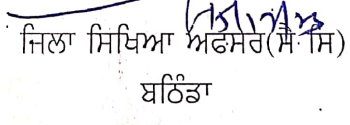 ਜਿਲਾ ਸਿਖਿਆ ਅਫਸਰ(ਸੈ ਸਿ)
ਬਠਿੰਡਾ